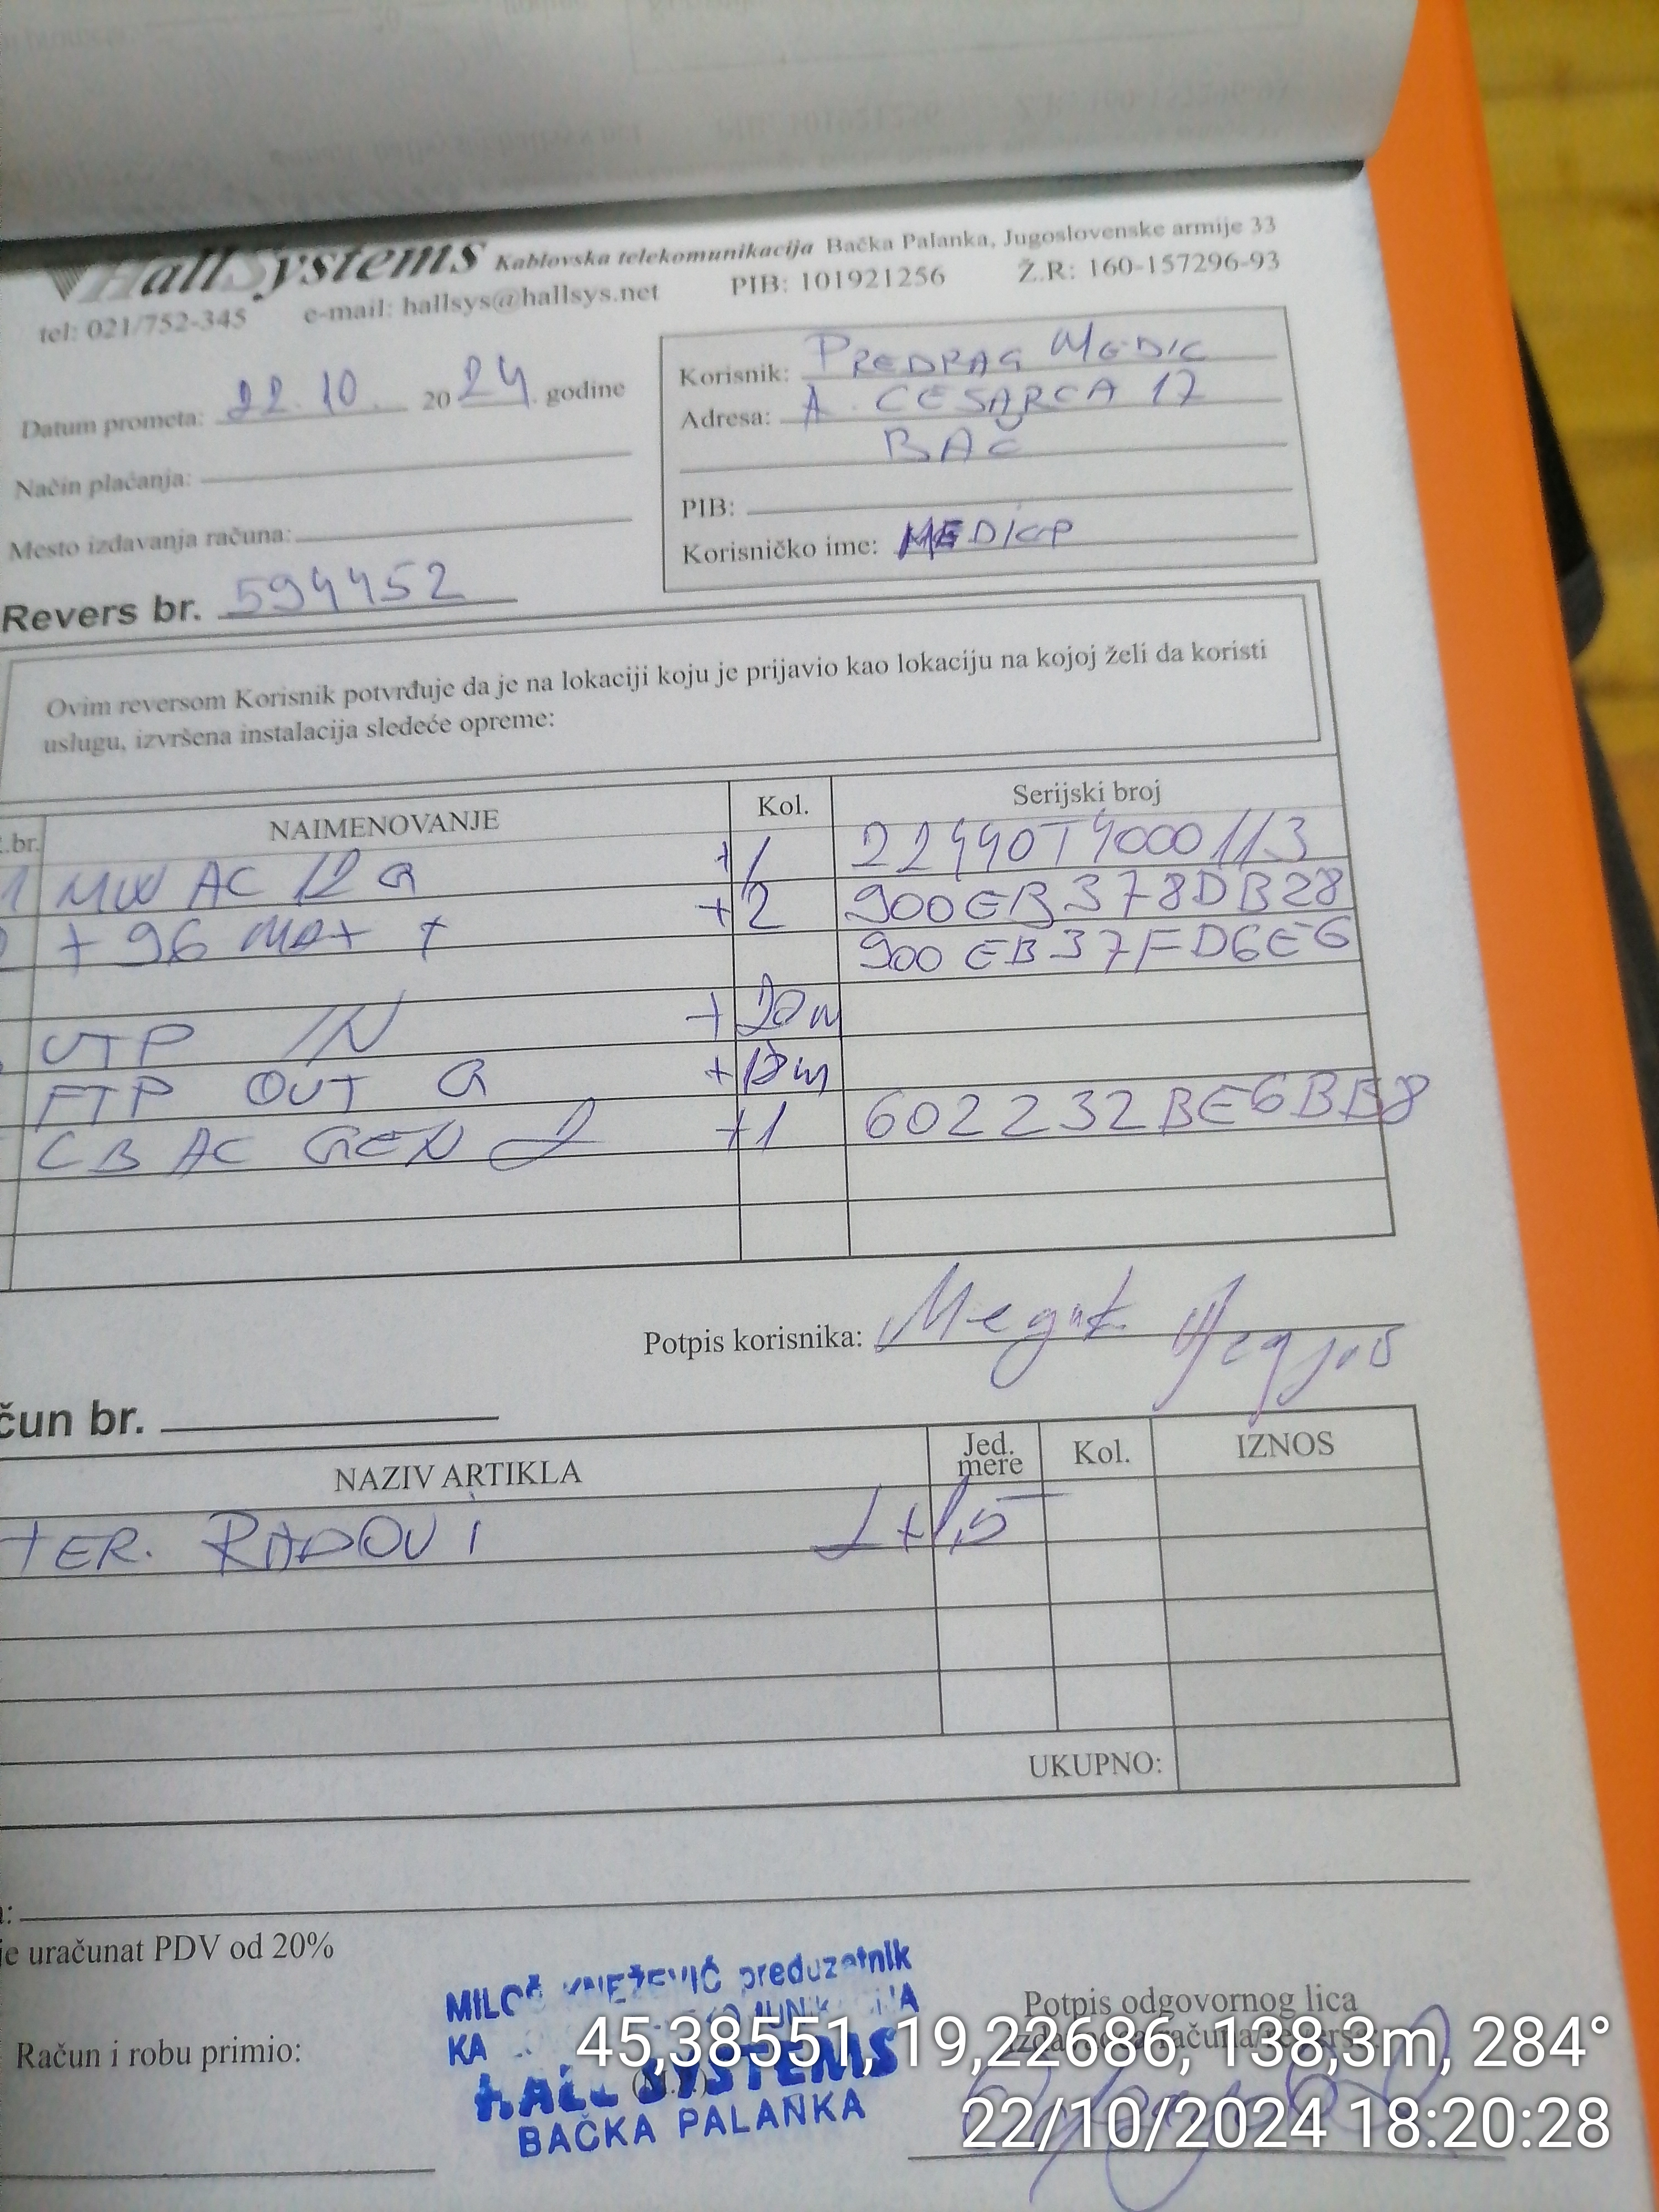 HallSystems Kablovska telekomunikacija Bačka Palanka, Jugoslovenske armije 33
tel: 021/752-345 e-mail: hallsys@hallsys.net PIB: 101921256 Ž.R: 160-157296-93
Datum prometa: 22.10. 2024. godine
Način plaćanja:
Mesto izdavanja računa:
Revers br. 594452
Korisnik: PREDRAG MEDIC
Adresa: A. CESARCA 17
BAČ
PIB:
Korisničko ime: MEDICP
Ovim reversom Korisnik potvrđuje da je na lokaciji koju je prijavio kao lokaciju na kojoj želi da koristi
uslugu, izvršena instalacija sledeće opreme:
.br. NAIMENOVANJE Kol. Serijski broj
1 MW AC 12 G +1 22440T4000113
+ 96 max + +2 900EB378DB28
900EB37FD6E6
UTP IN +20m
FTP OUT G
CB AC GEN 2 +1 602232BE6BB8
Potpis korisnika:
čun br.
NAZIV ARTIKLA Jed. mere Kol. IZNOS
TER. RADOVI 2+1,5
UKUPNO:
a:
je uračunat PDV od 20%
Račun i robu primio:
MILOŠ KNEŽEVIĆ preduzetnik
KA
HALL SYSTEMS
BAČKA PALANKA
Potpis odgovornog lica
45,38551, 19,22686, 138,3m, 284°
22/10/2024 18:20:28